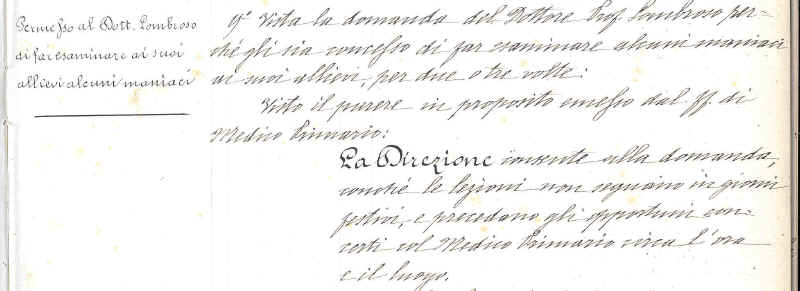 Permesso al Dott. Lombroso
di far esaminare ai suoi
allievi alcuni maniaci
9° Vista la domanda del Dottore Prof. Lombroso per-
ché gli sia concesso di far esaminare alcuni maniaci
ai suoi allievi, per due o tre volte:
Visto il parere in proposito emesso dal ff. di
Medico Primario:
La Direzione consente alla domanda,
conché le lezioni non seguano in giorni
festivi, e precedano gli opportuni con-
certi col Medico Primario circa l'ora
e il luogo.